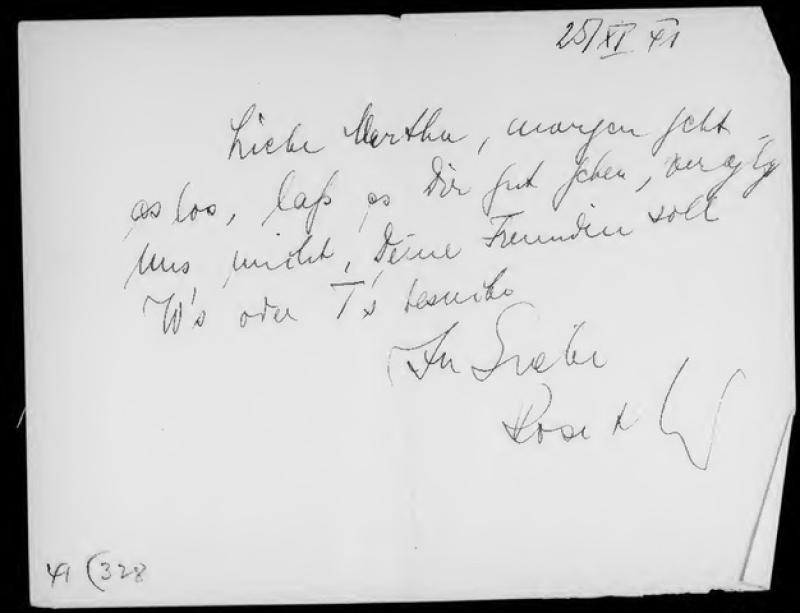 25/XI 41
Liebe Martha, morgen geht
es los, laß es Dir gut gehen, vergiß
uns nicht, Deine Freundin soll
W's oder T's besuchen
In Liebe
Rose +
41 (328